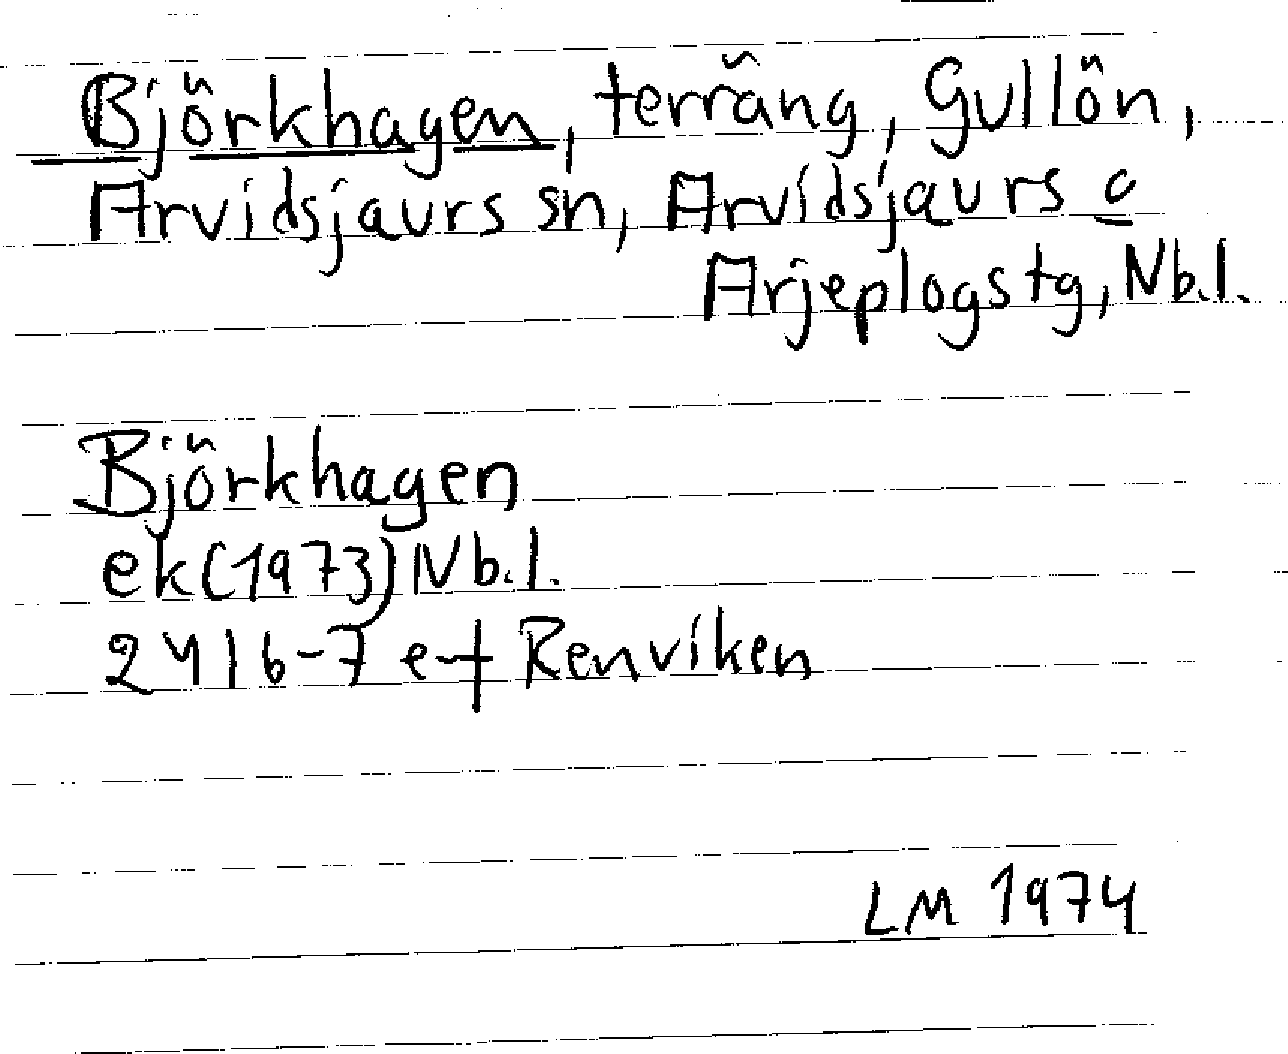 Björkhagen, terräng, Gullön,
Arvidsjaurs sn, Arvidsjaurs o
Arjeplogs tg, Nb.l.
Björkhagen
ek (1973) Nb.l.
24 I 6-7 e-f Renviken
LM 1974